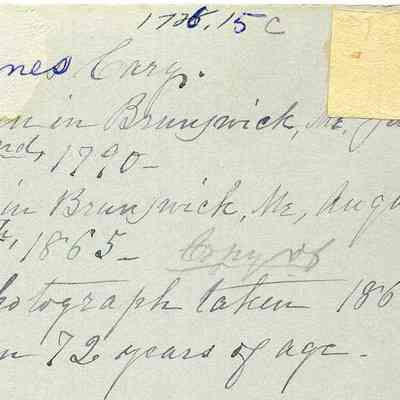 1726.15c
nes Cary.
n in Brunswick, Me, Ja
nd, 1790-
in Brunswick, Me, Augu
th, 1865- Copy of
hotograph taken 186
n 72 years of age.